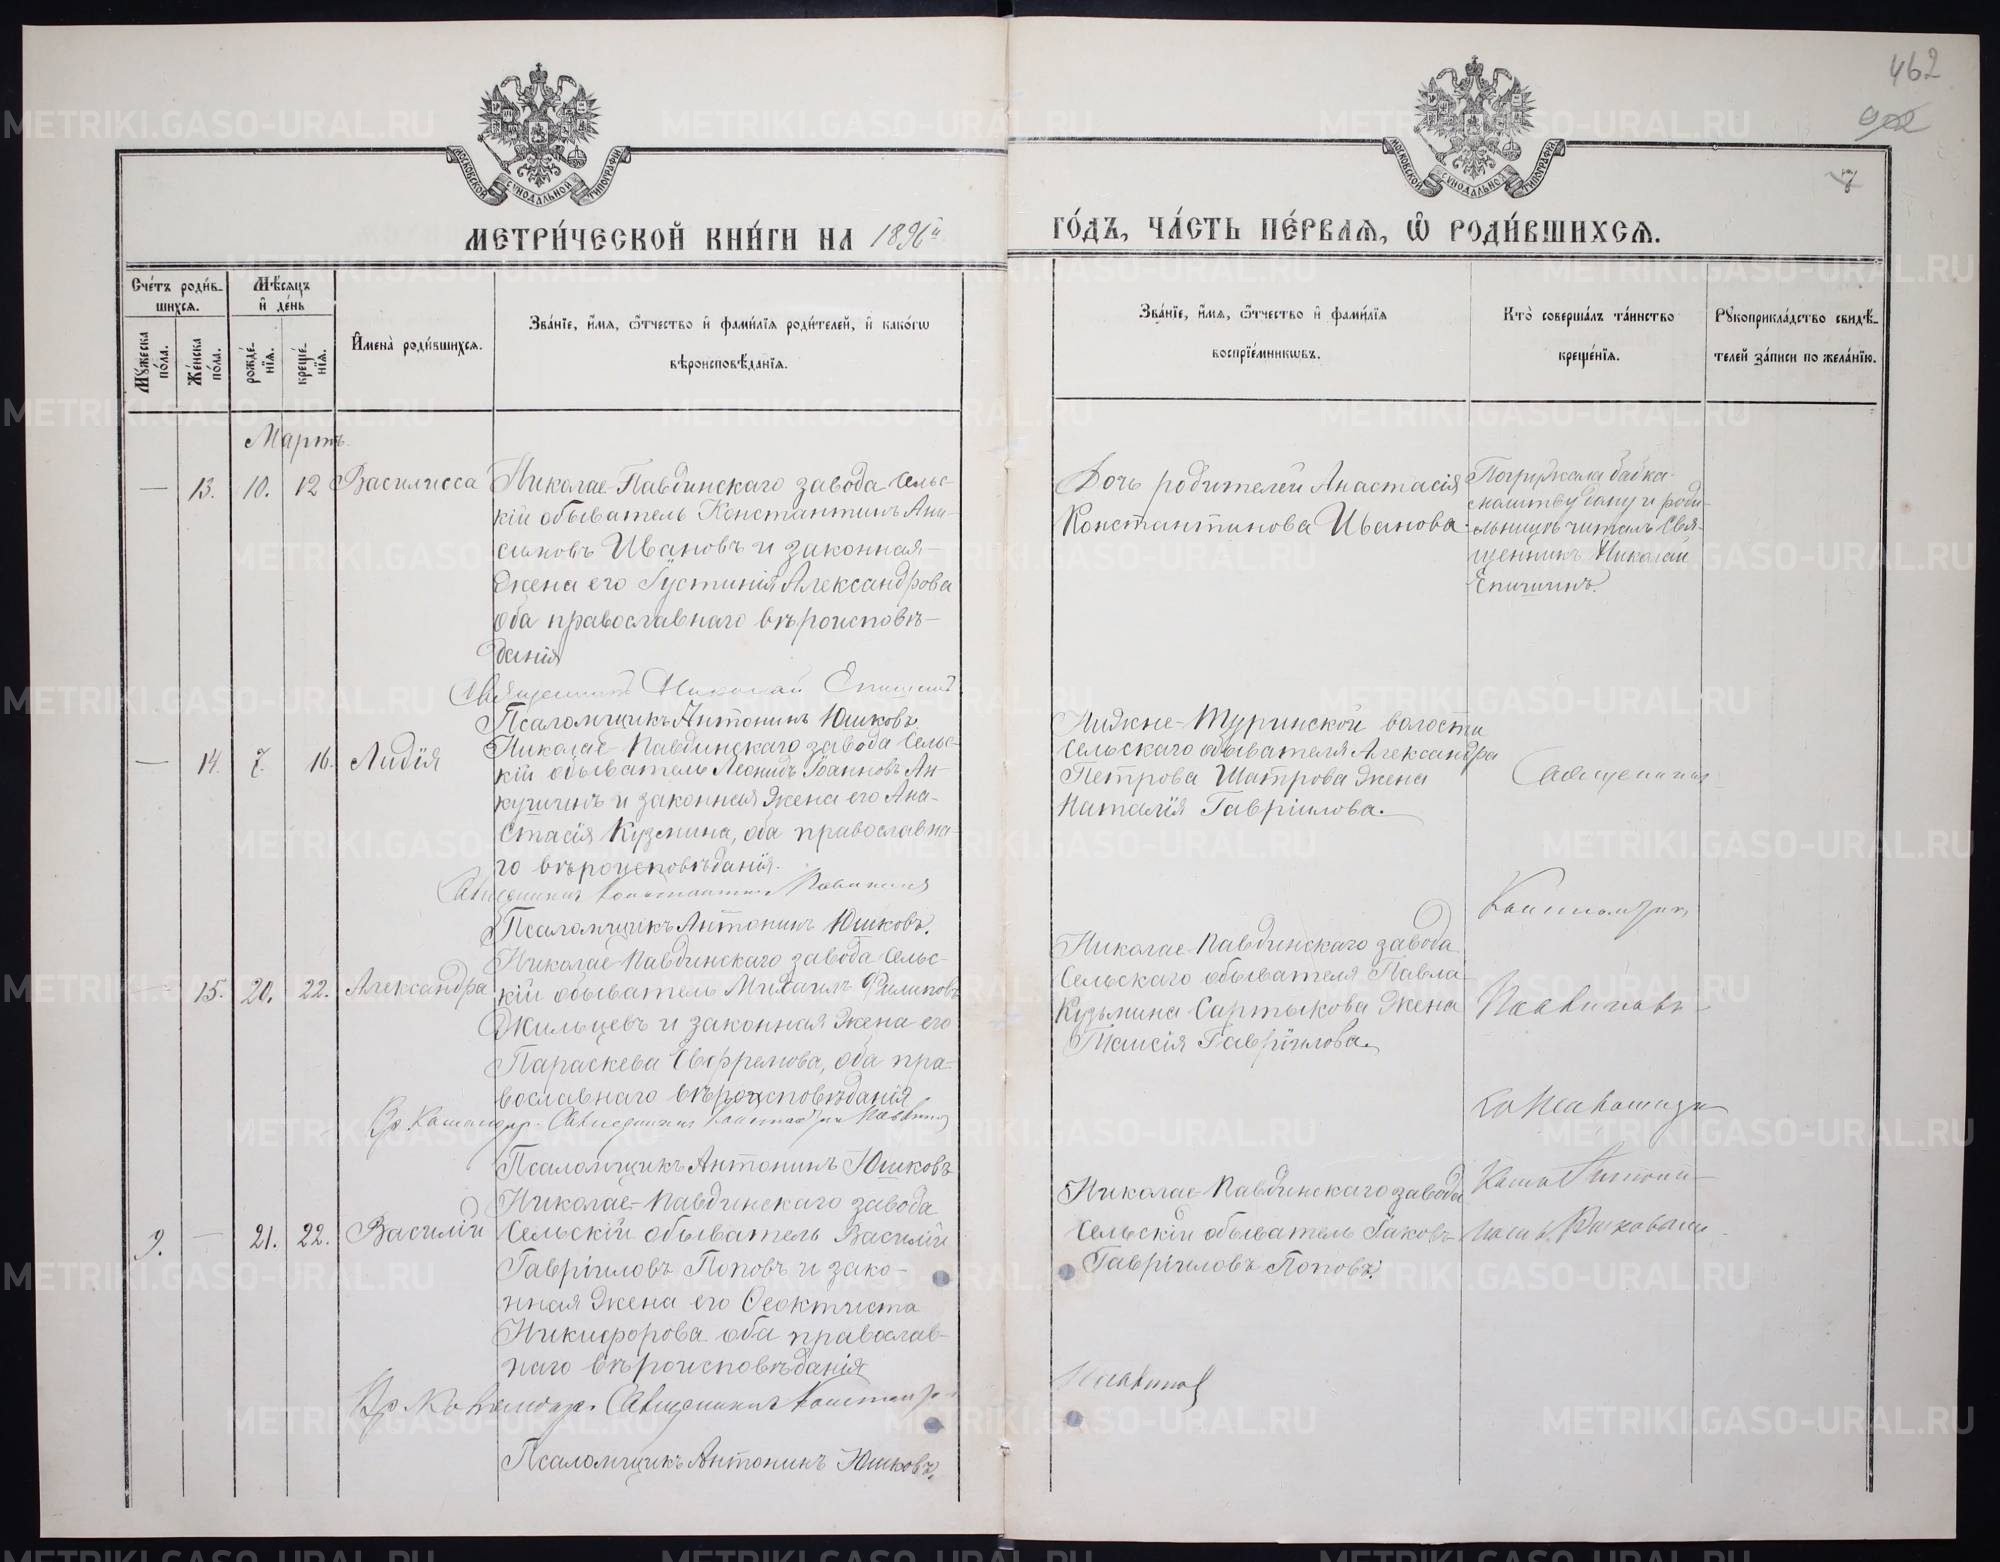 462
902
7
МОСКОВСКОЙ СУНОДАЛЬНОЙ ТИПОГРАФІИ
МОСКОВСКОЙ СУНОДАЛЬНОЙ ТИПОГРАФІИ
МЕТРИ́ЧЕСКОЙ КНИ́ГИ НА 1896й
ГО́ДЪ, ЧА́СТЬ ПЕ́РВАѦ, Ѡ҆ РОДИ́ВШИХСѦ.
Сче́тъ роди́в-
шихсѧ.
Мꙋжеска по́ла.
Же́нска по́ла.
Мѣ́сѧцъ
и҆ де́нь
рожде́-
нїѧ.
креще́-
нїѧ.
И҆мена̀ роди́вшихсѧ.
Зва́нїе, и҆́мѧ, ѻ҆́тчество и҆ фами́лїѧ роди́телей, и҆ како́гѡ
вѣроисповѣ́данїѧ.
Зва́нїе, и҆́мѧ, ѻ҆́тчество и҆ фами́лїѧ
воспрїе́мникѡвъ.
Кто̀ соверша́лъ та́инство
креще́нїѧ.
Рꙋкоприкла́дство свидѣ́-
телей за́писи по жела́нїю.
Мартъ.
— 13. 10. 12 Василисса
Николае-Павдинскаго завода сельс-
кій обыватель Константинъ Ани-
симовъ Ивановъ и законная
жена его Іустинія Александрова
оба православнаго вѣроисповѣ-
данія
Священникъ Николай Епишинъ
Псаломщикъ Антонинъ Юшковъ
Дочь родителей Анастасія
Константинова Иванова.
Погружала бабка
а молитву ей и роди-
льницѣ читалъ Свя-
щенникъ Николай
Епишинъ.
— 14. 7. 16. Лидія
Николае-Павдинскаго завода сельс-
кій обыватель Леонидъ Іоанновъ Ан-
кушинъ и законная жена его Ана-
стасія Кузмина, оба православна-
го вѣроисповѣданія.
Священникъ Константинъ
Псаломщикъ Антонинъ Юшковъ.
Нижне-Туринской волости
сельскаго обывателя Александра
Петрова Шатрова жена
Наталія Гавріилова.
Священникъ
— 15. 20. 22. Александра
Николае-Павдинскаго завода сельс-
кій обыватель Михаилъ Филиповъ
Жильцевъ и законная жена его
Параскева Евфремова, оба пра-
вославнаго вѣроисповѣданія
Священникъ
Псаломщикъ Антонинъ Юшковъ
Николае-Павдинскаго завода
сельскаго обывателя Павла
Кузьмина Сартыкова жена
Таисія Гавріилова.
9. — 21. 22. Василій
Николае-Павдинскаго завода
сельскій обыватель Василій
Гавріиловъ Поповъ и зако-
нная жена его Феоктиста
Никифорова оба православ-
наго вѣроисповѣданія
Священникъ
Псаломщикъ Антонинъ Юшковъ.
Николае-Павдинскаго завода
сельскій обыватель Іаковъ
Гавріиловъ Поповъ.
METRIKI.GASO-URAL.RU